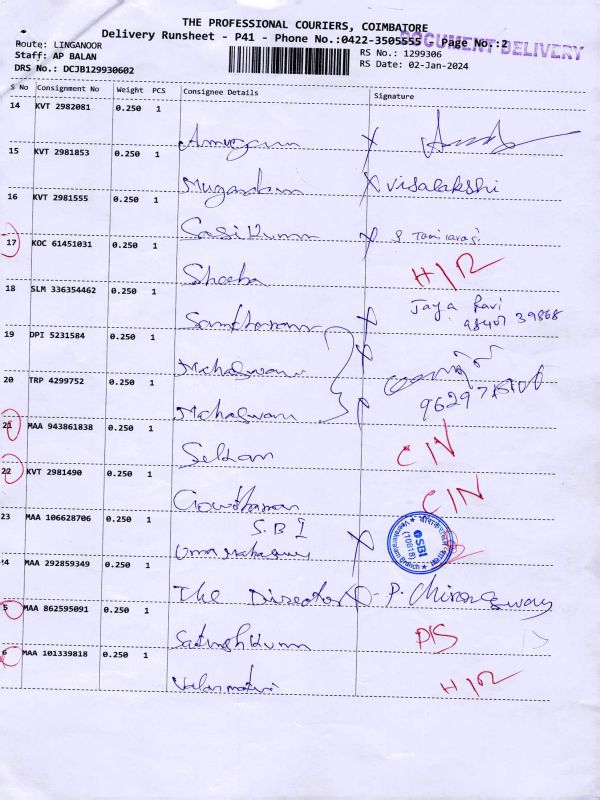 THE PROFESSIONAL COURIERS, COIMBATORE
Delivery Runsheet - P41 - Phone No.:0422-3505555 Page No.:2
DOCUMENT DELIVERY
Route: LINGANOOR
RS No.: 1299306
Staff: AP BALAN
RS Date: 02-Jan-2024
DRS No.: DCJB129930602
S No Consignment No Weight PCS Consignee Details Signature
14 KVT 2982081 0.250 1
15 KVT 2981853 0.250 1
X Visalakshi
16 KVT 2981555 0.250 1
Sasikumar X
17 KOC 61451031 0.250 1
Sheeba H/R
18 SLM 336354462 0.250 1
X Jaya Ravi
98407 39868
19 DPI 5231584 0.250 1
Maheswari
20 TRP 4299752 0.250 1
Maheswari X
21 MAA 943861838 0.250 1
Selvam C/N
22 KVT 2981490 0.250 1
Gowthaman C/N
23 MAA 106628706 0.250 1
S.B.I
Uma Maheswari X
SBI
(10618)
Veerakeralam Branch
24 MAA 292859349 0.250 1
The Director
5 MAA 862595091 0.250 1
Sathish Kumar D/S
6 MAA 101339818 0.250 1
Valarmathi H/R